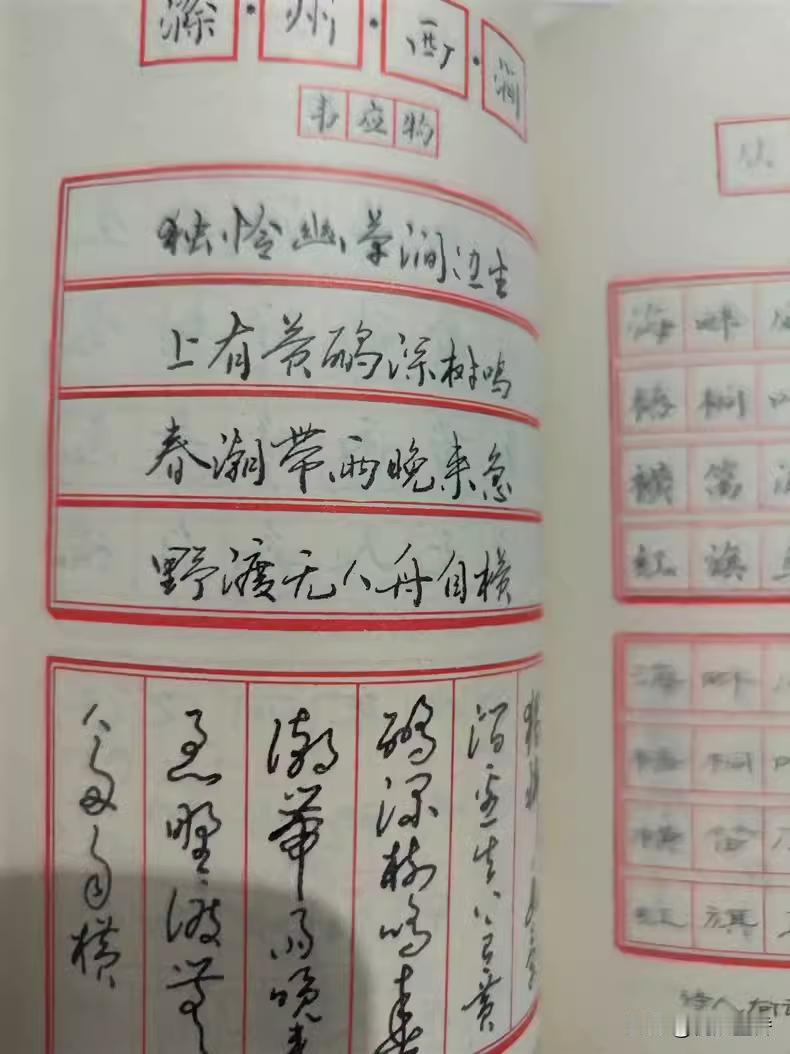 滁·州·西·涧
韦应物
独怜幽草涧边生
上有黄鹂深树鸣
春潮带雨晚来急
野渡无人舟自横
涧边生上有黄
鹂深树鸣春
潮带雨晚来
急野渡无
人舟自横
海畔
横笛
红旗
海畔
横笛
红旗